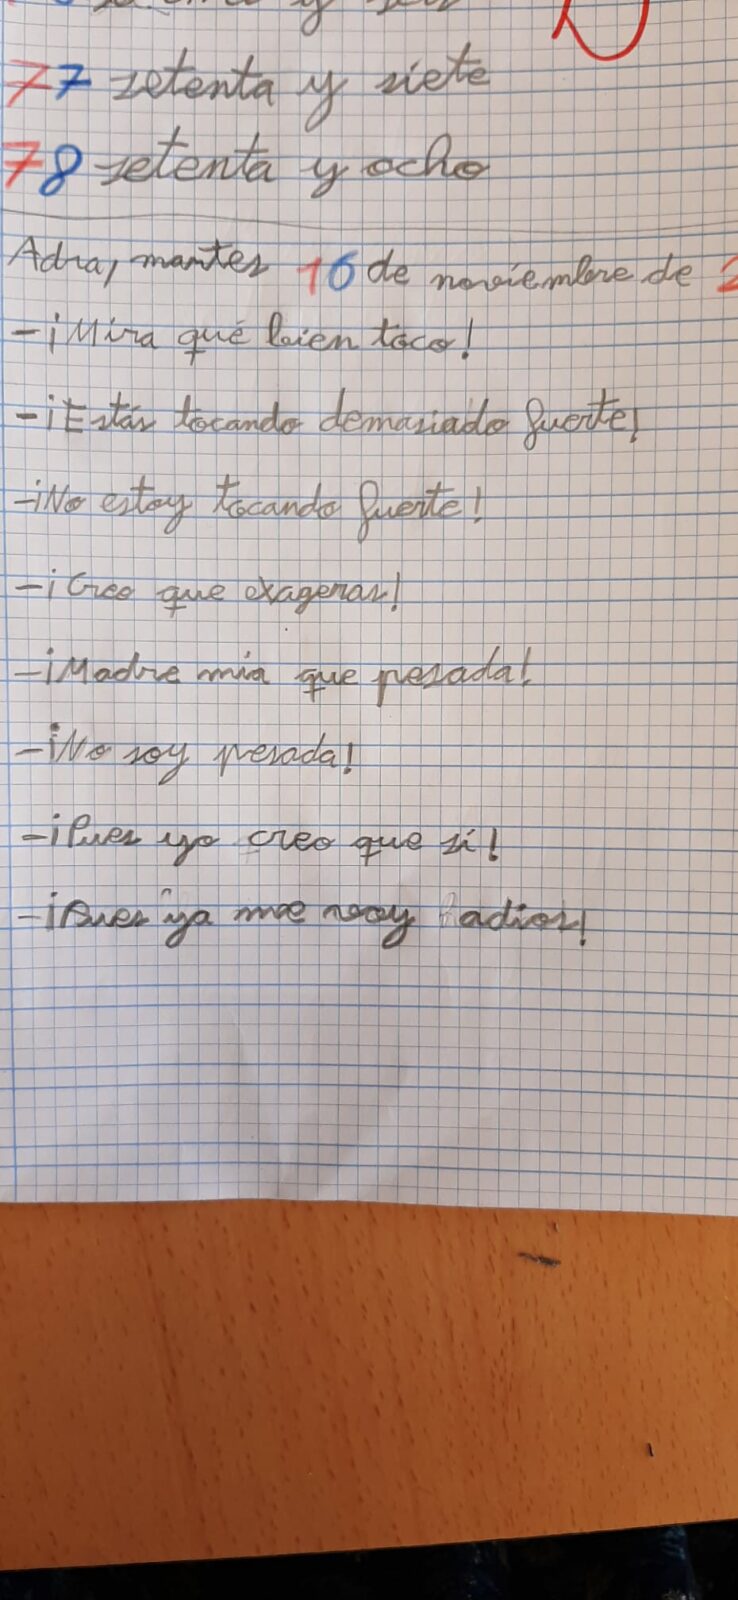 77 setenta y siete
78 setenta y ocho
Adra, martes 16 de noviembre de 2
-¡Mira qué bien toco!
-¡Estás tocando demasiado fuerte!
-¡No estoy tocando fuerte!
-¡Creo que exageras!
-¡Madre mía que pesada!
-¡No soy pesada!
-¡Pues yo creo que sí!
-¡Pues ya me voy adios!